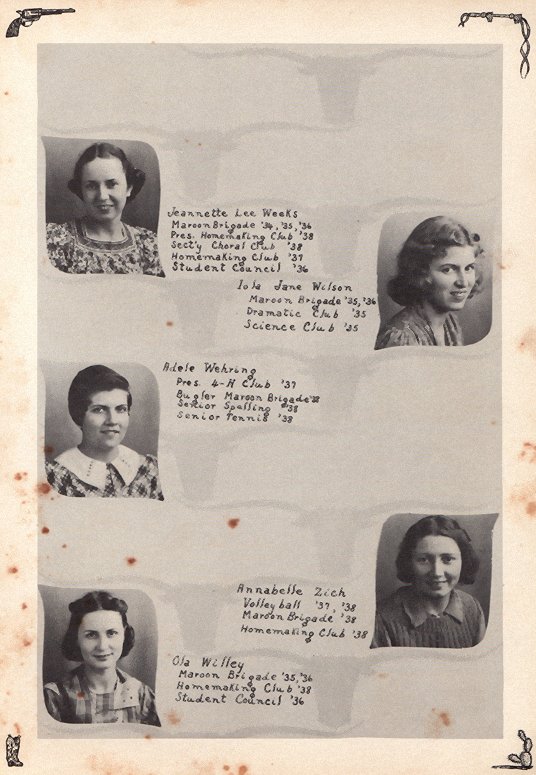 Jeannette Lee Weeks
Maroon Brigade '34, '35, '36
Pres. Homemaking Club '38
Sect'y Choral Club '38
Homemaking Club '37
Student Council '36
Iola Jane Wilson
Maroon Brigade '35, '36
Dramatic Club '35
Science Club '35
Adele Wehring
Pres. 4-H Club '37
Bugler Maroon Brigade '38
Senior Spelling '38
Senior Tennis '38
Annabelle Zich
Volleyball '37, '38
Maroon Brigade '38
Homemaking Club '38
Ola Willey
Maroon Brigade '35, '36
Homemaking Club '38
Student Council '36